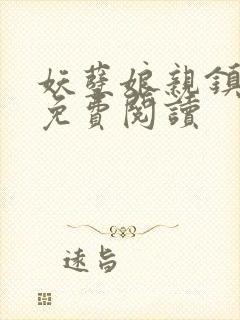 妖孽娘親鎮
免費閱讀
遠旨